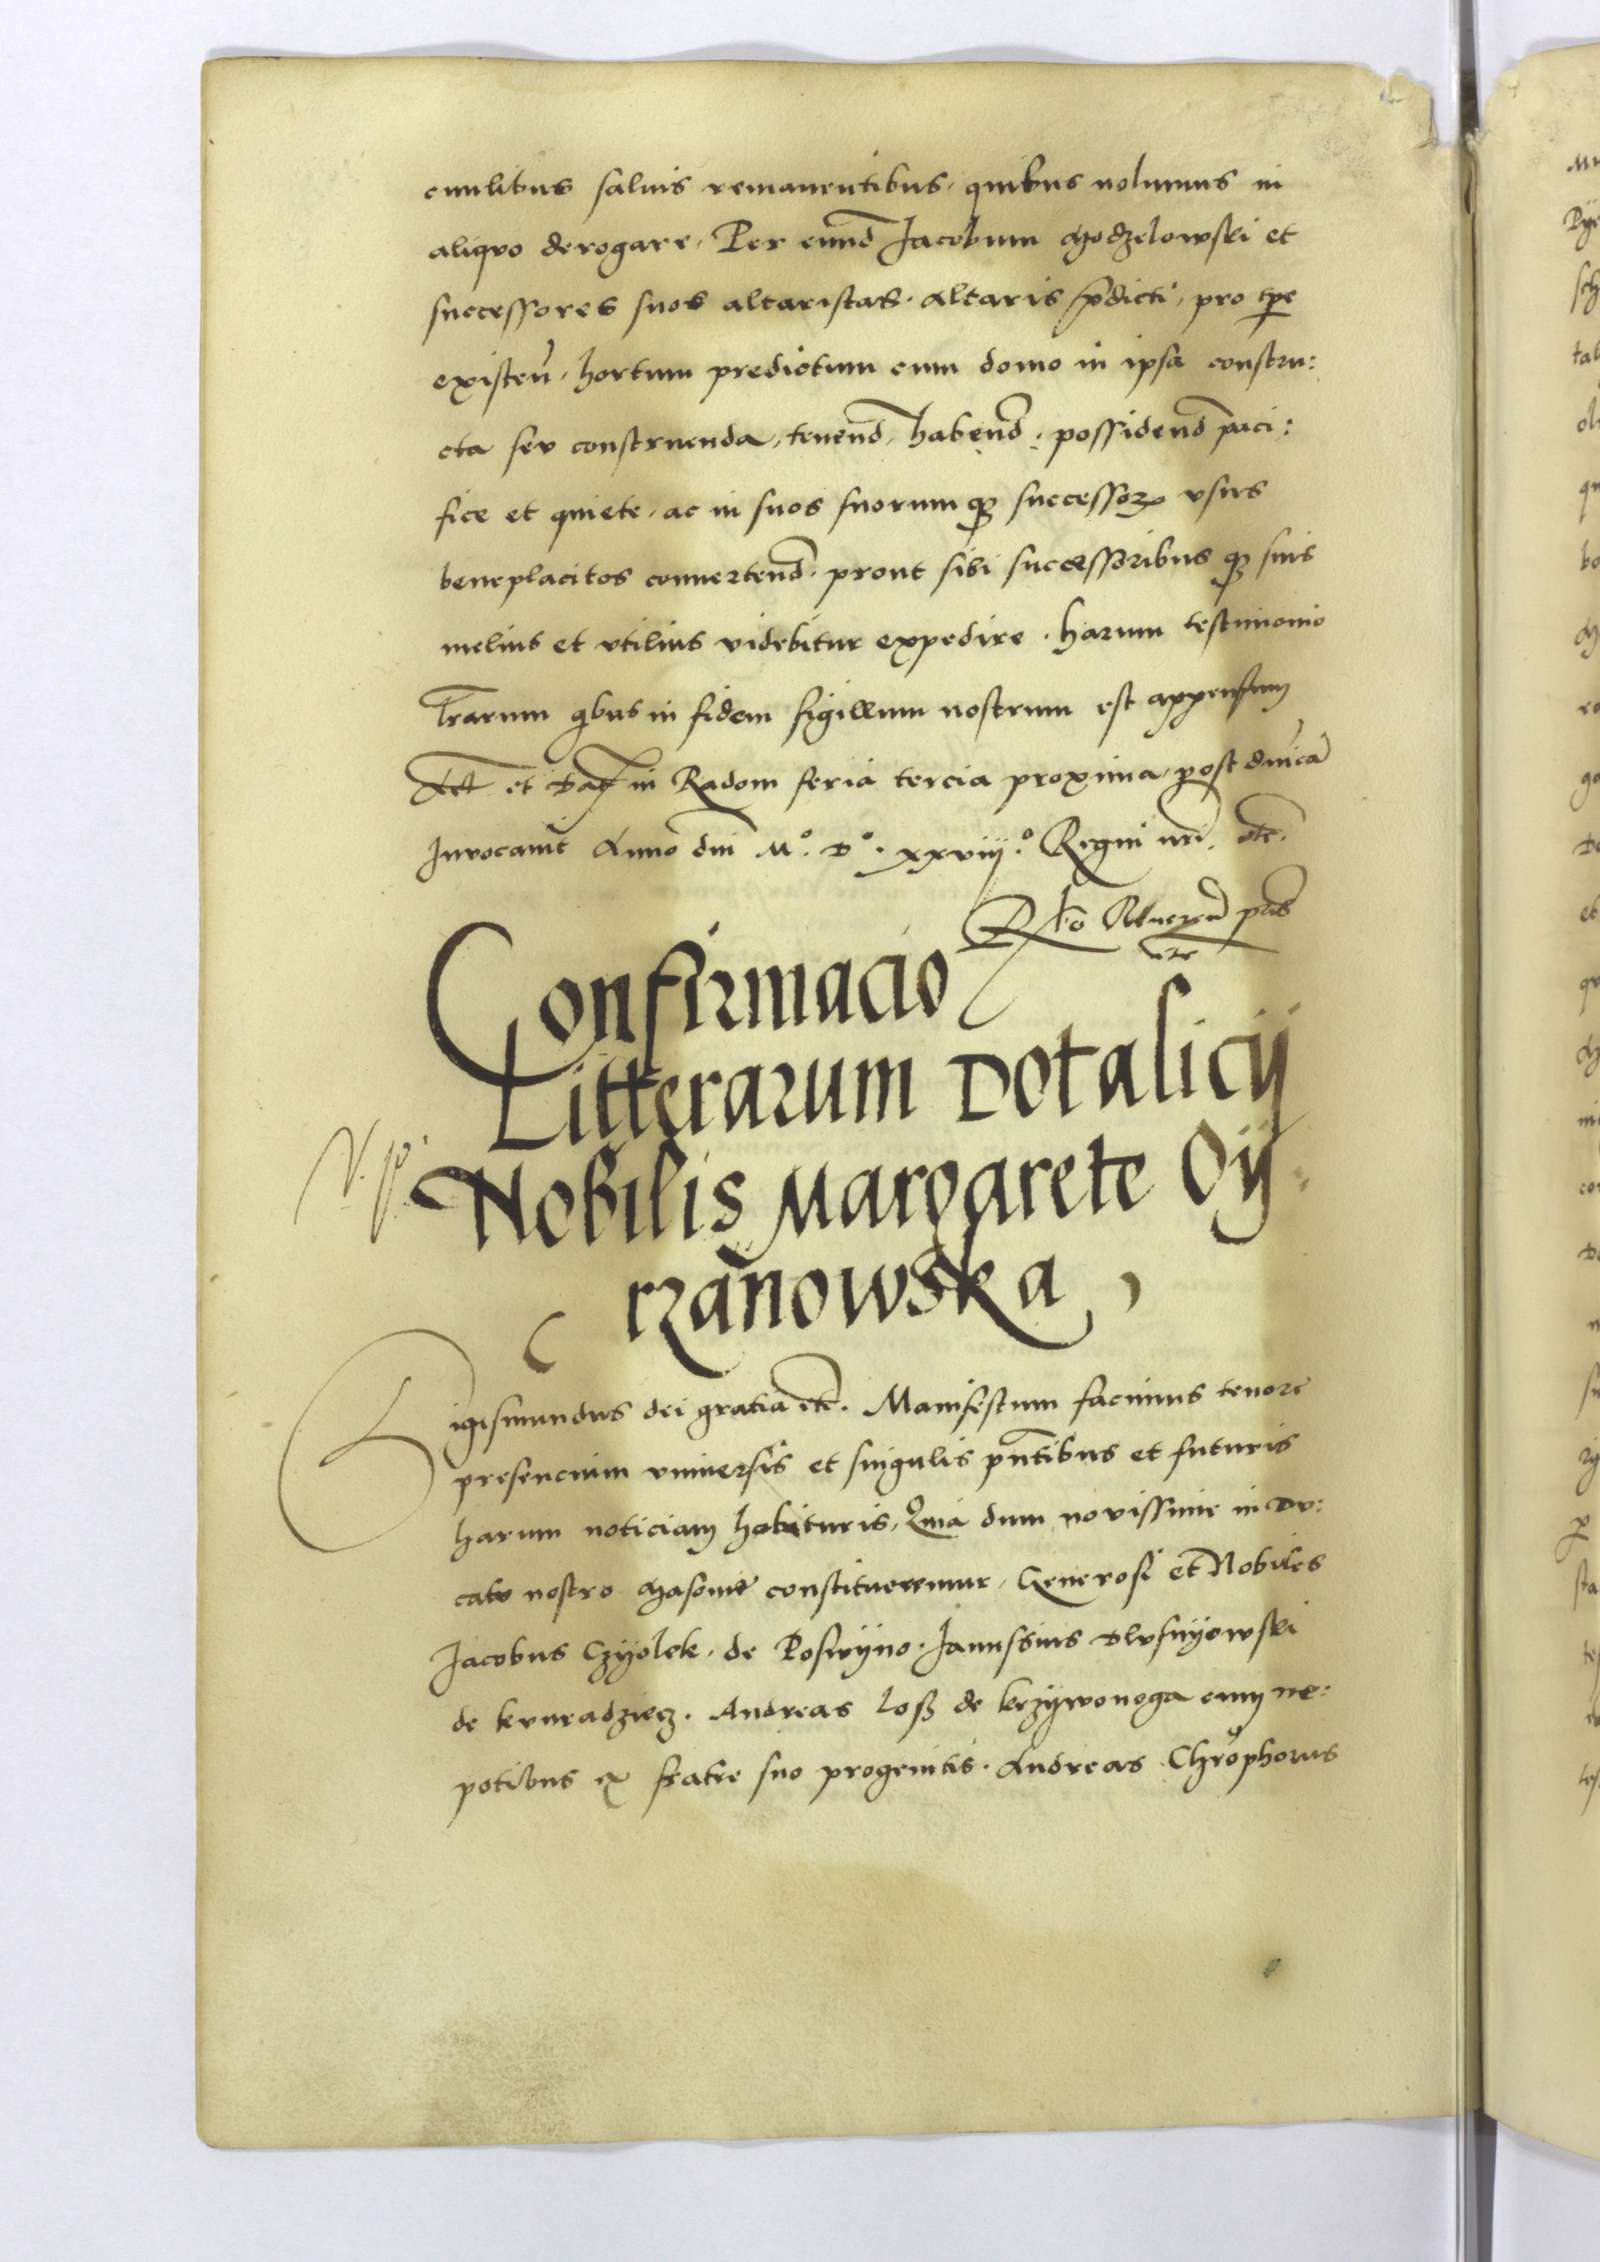 cunlibus saluis remanentibus, quibus nolumus in
aliquo derogare, Per eund Jacobum Modzelowski et
successores suos altaristas. altaris p̄dicti, pro tp̄e
existeñ. hortum predictum cum domo in ipsa constru:
cta seu construenda, tenend̄, habend̄. possidend̄ paci:
fice et quiete, ac in suos suorumq3 successorꝝ vsus
beneplacitos conuertend̄. prout sibi successoribusq3 suis
melius et vtilius videbitur expedire. harum testimonio
l̄rarum qbus in fidem sigillum nostrum est appensum
Act et Dat in Radom feria tercia proxima post dn̄icā
Inuocauit Anno dn̄i M°. D°. xxviij.° Regni nr̄i. etc.
R̄lo Reuerend̄ pr̄is
etc
Confirmacio
Litterarum Dotalicij
Nobilis Margarete Oÿ
rzanowska,
V. p.
Sigismundus dei gratia etc. Manifestum facimus tenore
presencium vniuersis et singulis pn̄tibus et futuris
harum noticiam habituris, Quia dum nouissime in Du:
catu nostro Masouie constitueremur, Generosi et Nobiles
Jacobus Czÿolek. de Poswÿno. Janussius Dlusnÿowski
de kunradziecz. Andreas Losz de krzÿwonoga cum ne:
potibus ex fratre suo progenitis. Andreas Chrōphorus